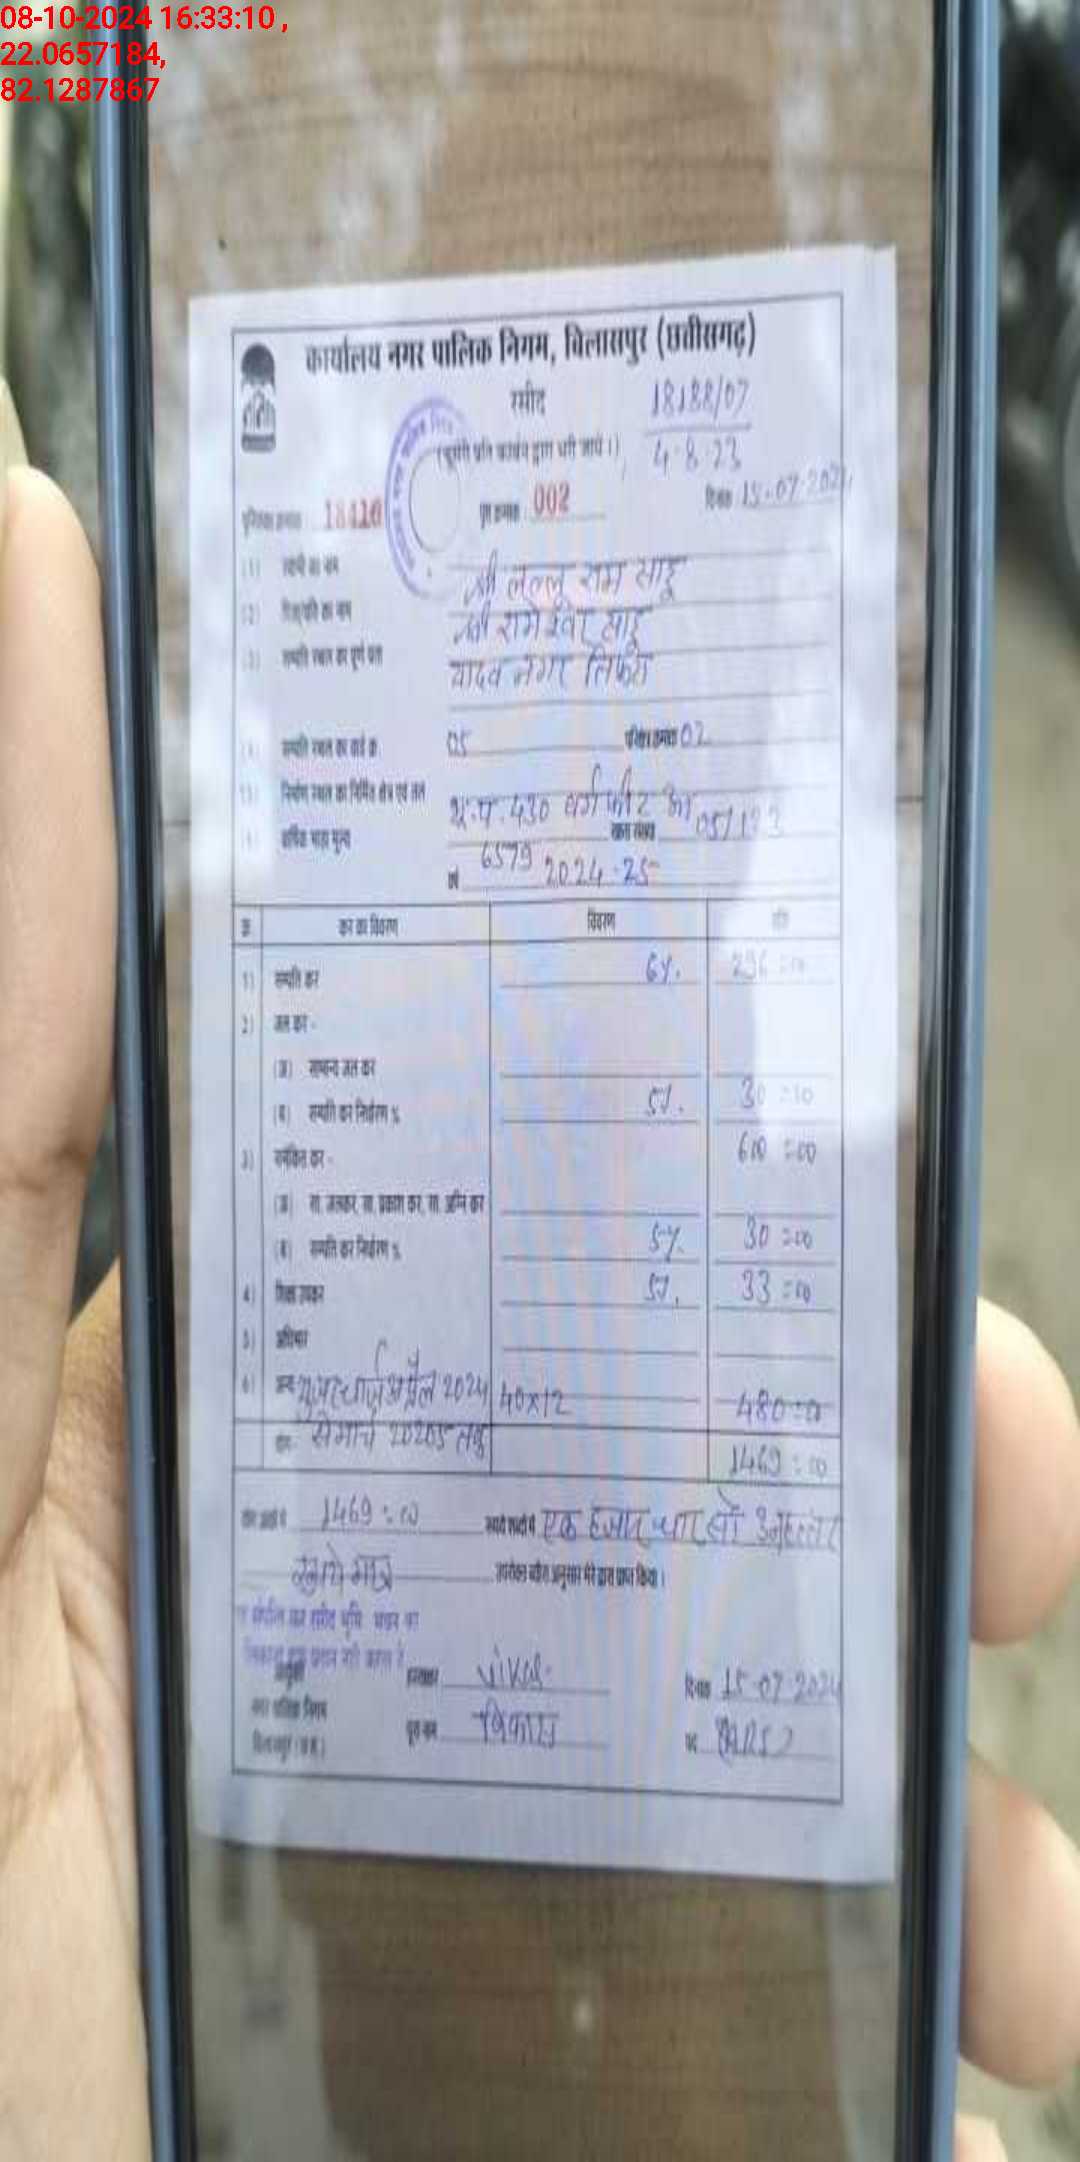 08-10-2024 16:33:10 ,
22.0657184,
82.1287867
कार्यालय नगर पालिक निगम, बिलासपुर (छत्तीसगढ़)
रसीद 18188/07
4-8-23
पुस्तिका क्रमांक 18416 पृष्ठ क्रमांक 002 दिनांक 15-07-2024
(1) स्वामी का नाम श्री लल्लू राम साहू
(2) पिता/पति का नाम श्री रामेश्वर साहू
(3) सम्पत्ति स्थल का पूर्ण पता यादव नगर तिफरा
(4) सम्पत्ति स्थल का वार्ड क्र. 05 परिक्षेत्र क्रमांक 02
(5) निर्माण स्थल का निर्मित क्षेत्र एवं तल 430 वर्ग फीट
वार्षिक भाड़ा मूल्य 6579
वर्ष 2024-25
क्र. कर का विवरण विवरण राशि
1) सम्पत्ति कर 6%.
2) जल कर -
(अ) सामान्य जल कर
(ब) सम्पत्ति कर निर्धारण % 5%. 30
3) समेकित कर - 600=00
(अ) सा. जलकर, सा. प्रकाश कर, सा. अग्नि कर
(ब) सम्पत्ति कर निर्धारण % 5%. 30=00
4) शिक्षा उपकर 5%. 33=00
5) अधिभार
6) अन्य यूजर चार्ज अप्रैल 2024 40x12 480=00
योग से मार्च 20205 तक 1469=00
1469=00 रुपये शब्दों में एक हजार चार सौ उनहत्तर
रुपये मात्र उपरोक्त ब्यौरा अनुसार मेरे द्वारा प्राप्त किया।
आयुक्त हस्ताक्षर दिनांक 15-07-2024
नगर पालिक निगम पूरा नाम विकास पद
बिलासपुर (छ.ग.)